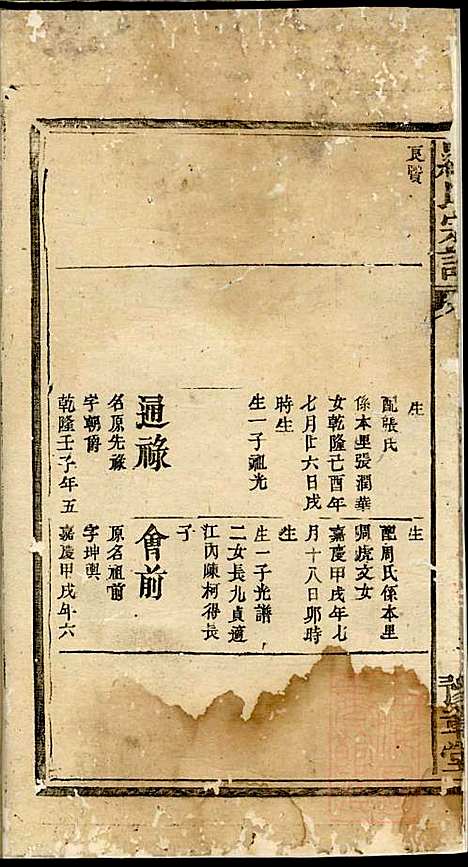 羅氏宗譜
豫章堂
良賢
生
配張氏
係本里張潤華
女乾隆己酉年
七月廿六日戌
時生
生一子祖光
通祿
名原先祿
字朝爵
乾隆壬子年五
生
配周氏係本里
周虎文女
嘉慶甲戌年七
月十八日卯時
生
生一子光譜
二女長九貞適
江內陳柯得長
子
會前
原名祖前
字坤輿
嘉慶甲戌年六